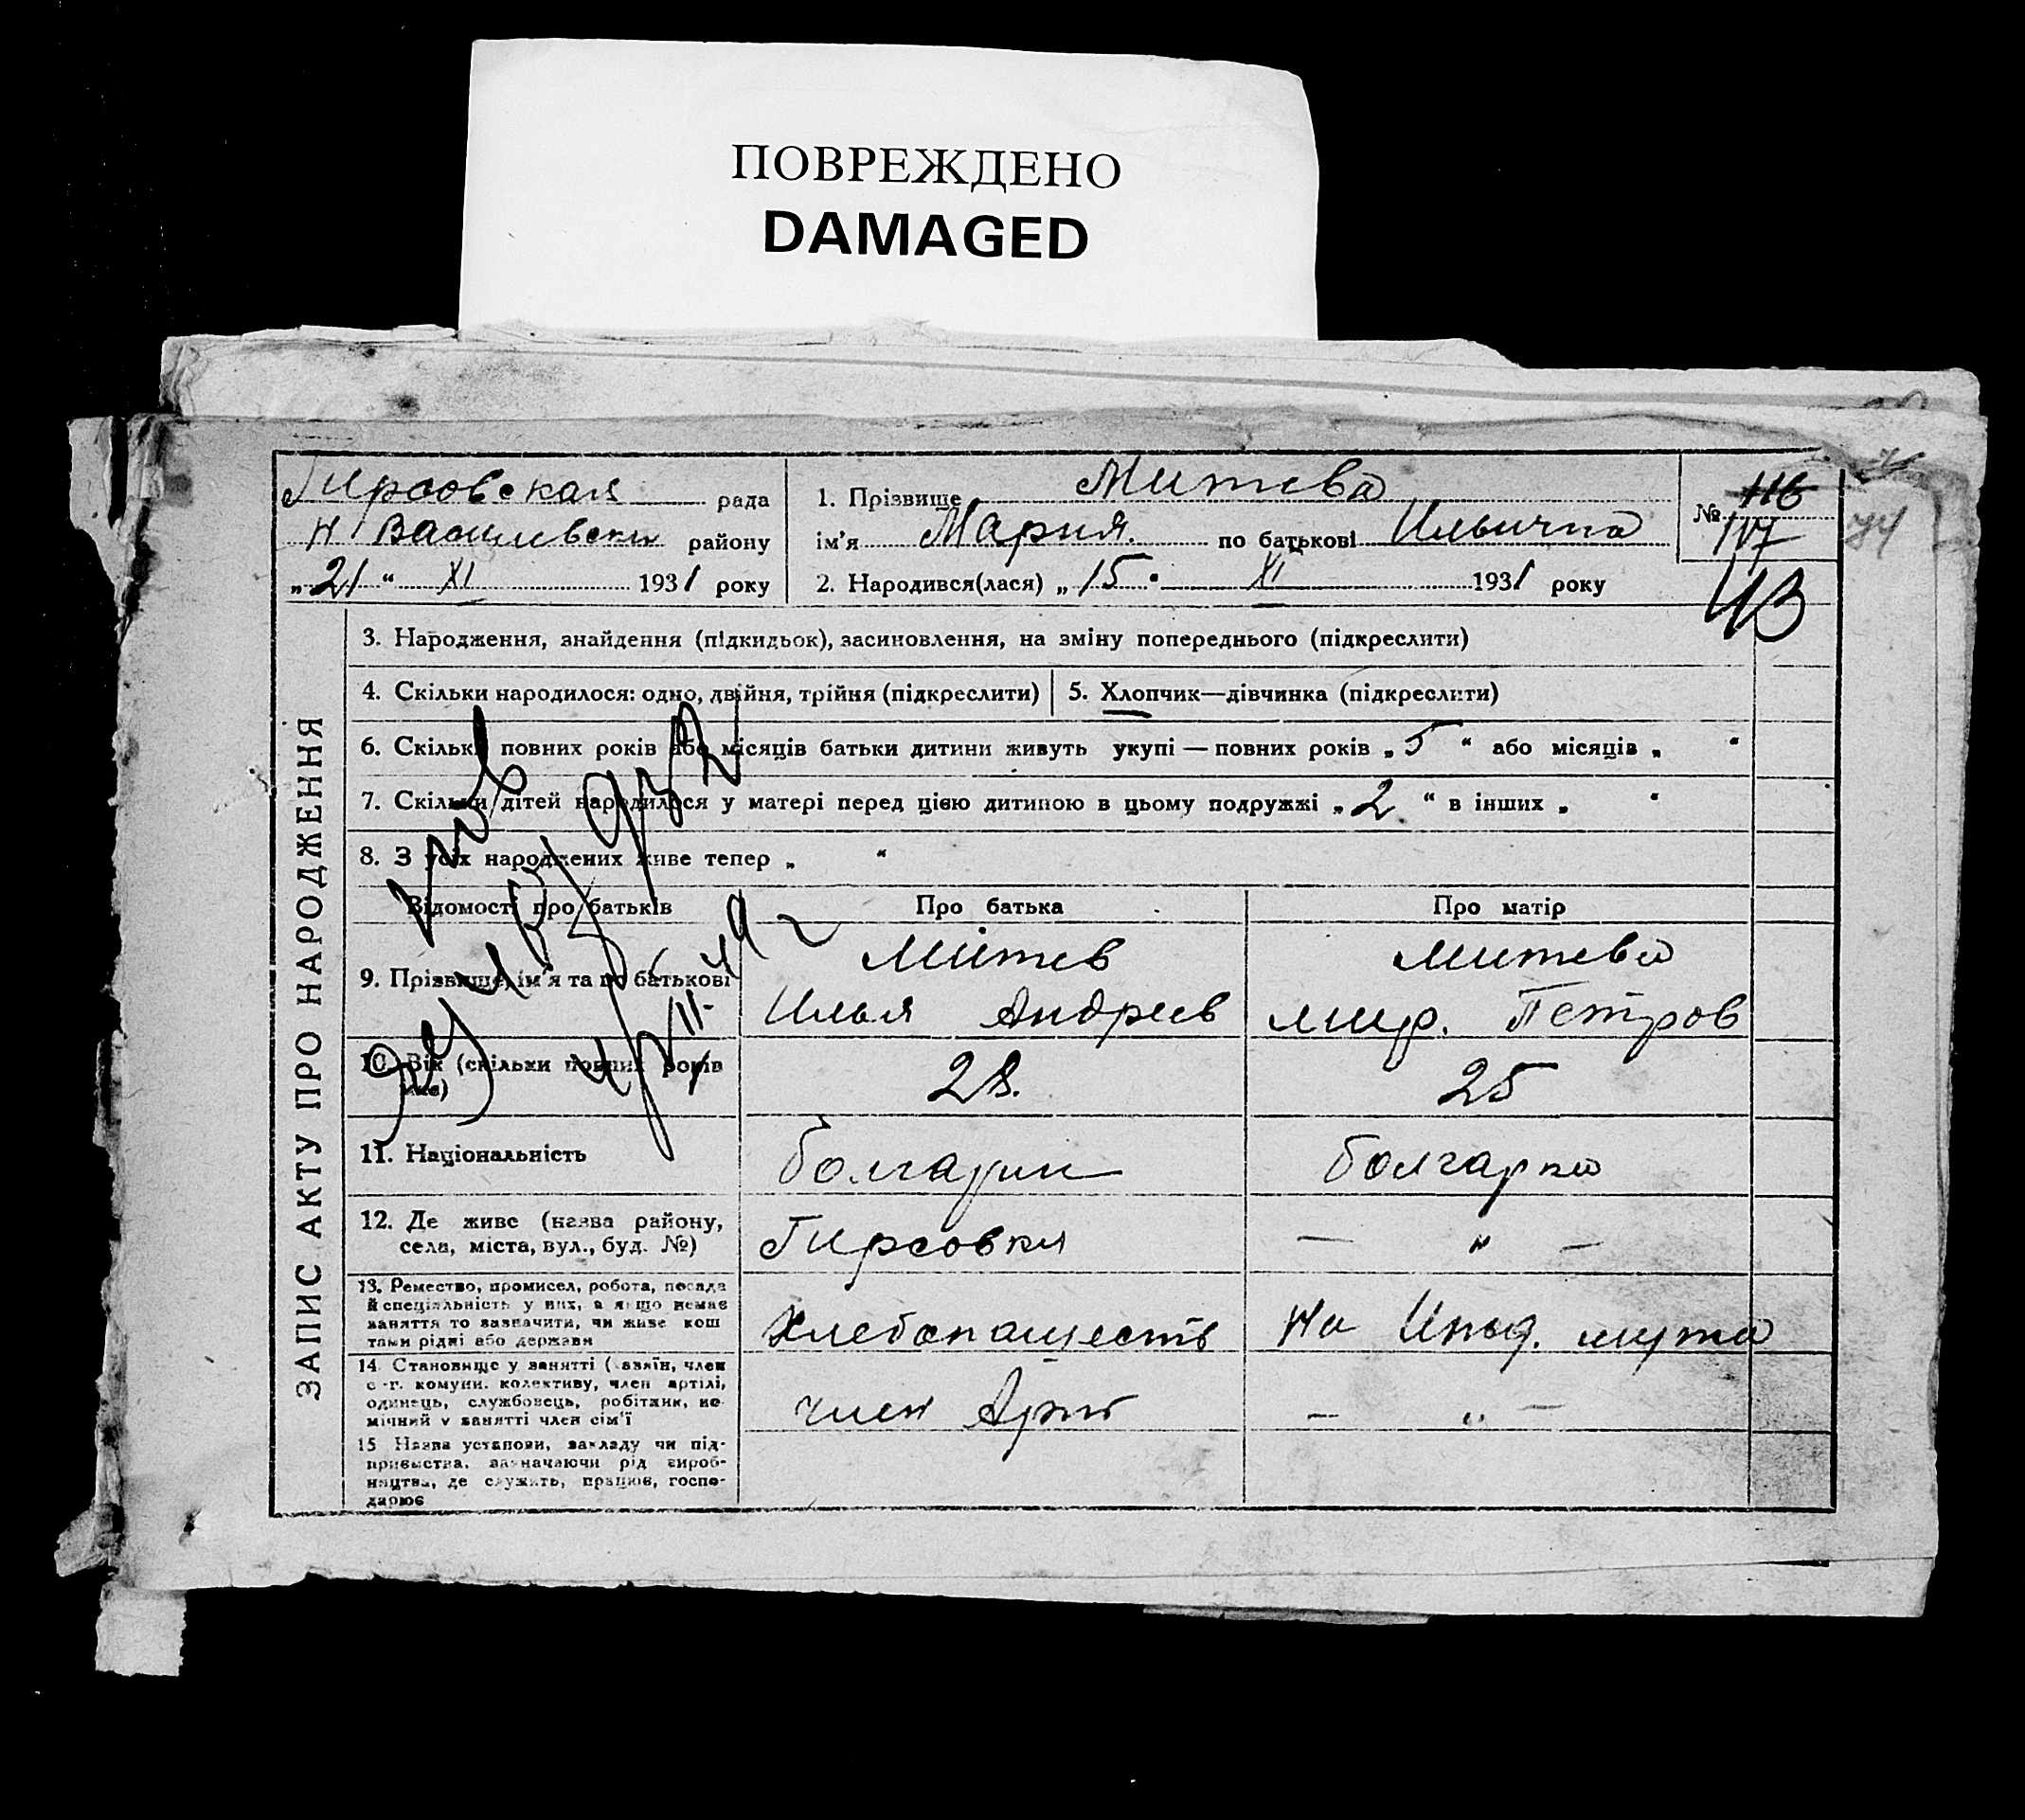 ПОВРЕЖДЕНО
DAMAGED
Гирсовская рада
Н Василевски району
„21“ XI 1931 року
1. Прізвище Митева
ім'я Мария. по батькові Ильична
2. Народився(лася) „15“ XI 1931 року
№ 116
117
74
ЗАПИС АКТУ ПРО НАРОДЖЕННЯ
3. Народження, знайдення (підкидьок), засиновлення, на зміну попереднього (підкреслити)
4. Скільки народилося: одно, двійня, трійня (підкреслити)
5. Хлопчик—дівчинка (підкреслити)
6. Скільки повних років або місяців батьки дитини живуть укупі — повних років „5“ або місяців „ “
7. Скільки дітей народилося у матері перед цією дитиною в цьому подружжі „2“ в інших „ “
8. З усіх народжених живе тепер „ “
Відомості про батьків Про батька Про матір
9. Прізвище, ім'я та по батькові
Митев
Илья Андреев
Митева
Петров
10. Вік (скільки повних років
має)
28.
25
11. Національність
болгарин
болгарка
12. Де живе (назва району,
села, міста, вул., буд. №)
Гирсовка
— „ —
13. Ремество, промисел, робота, посада
й спеціяльність у них, а якщо немає
заняття то зазначити, чи живе кош
тами рідні або держави
Хлебопашеств
На Ижд. мужа
14. Становище у занятті (хазяїн, член
с.-г. комуни. колективу, член артілі,
одинець, службовець, робітник, по-
мічний у занятті член сім'ї
член Арт
— „ —
15 Назва установи, закладу чи під-
приємства, зазначаючи рід вироб-
ництва, де служить, працює, госпо-
дарює